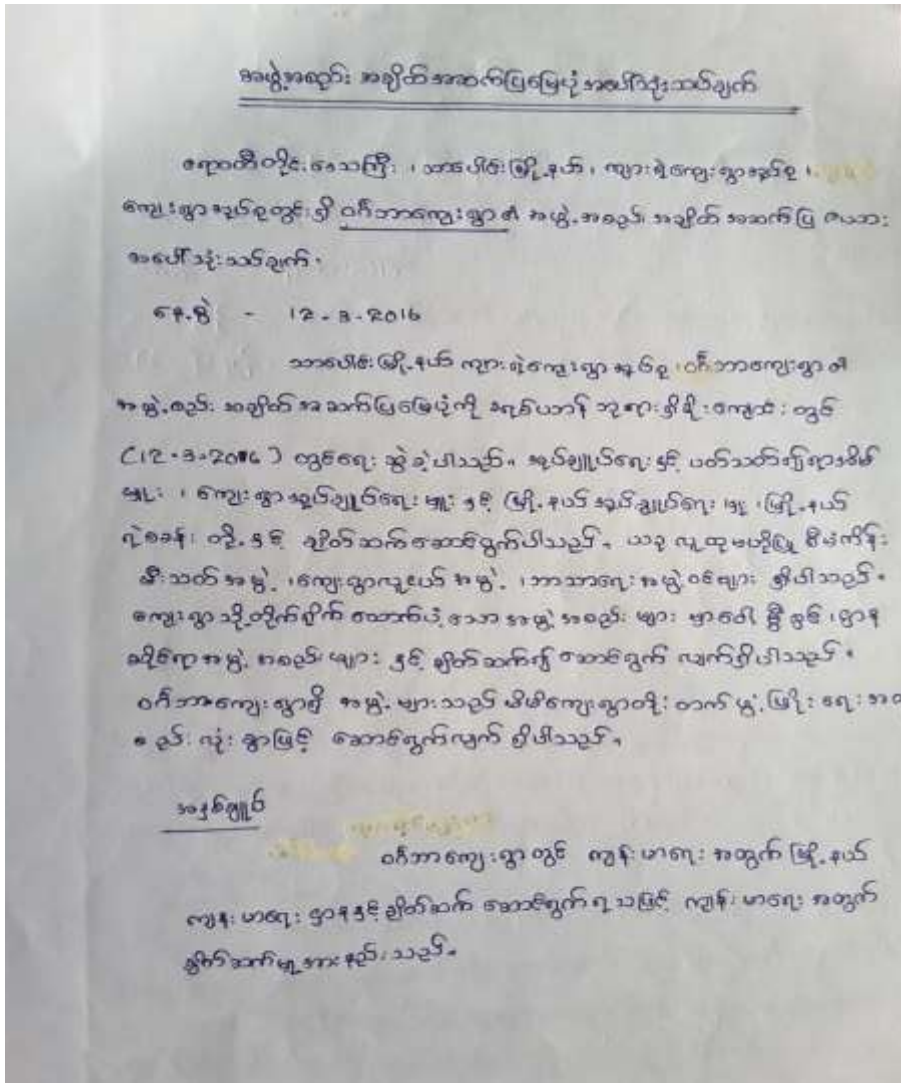 အဖွဲ့အစည်း အချိတ်အဆက်ပြမြေပုံ အပေါ်သုံးသပ်ချက်
ဧရာဝတီတိုင်းဒေသကြီး ၊ သာပေါင်းမြို့နယ် ၊ ကျားရဲကျေးရွာအုပ်စု ၊
ကျေးရွာအုပ်စုတွင်းရှိ ဝင်္ဂဘာကျေးရွာ၏ အဖွဲ့အစည်း အချိတ်အဆက်ပြ ဇယား
အပေါ်သုံးသပ်ချက်၊
နေ့စွဲ - 12-3-2016
သာပေါင်းမြို့နယ် ကျားရဲကျေးရွာအုပ်စု ၊ ဝင်္ဂဘာကျေးရွာ၏
အဖွဲ့စည်း အချိတ်အဆက်ပြမြေပုံကို ဘုရားရှိခိုးကျောင်းတွင်
(12-3-2016) တွင်ရေးဆွဲခဲ့ပါသည်။ အုပ်ချုပ်ရေးနှင့် ပတ်သတ်၍ရာအိမ်
မှူး ၊ ကျေးရွာအုပ်ချုပ်ရေးမှူးနှင့် မြို့နယ်အုပ်ချုပ်ရေးမှူး ၊ မြို့နယ်
ရဲစခန်း တို့နှင့် ချိတ်ဆက်ဆောင်ရွက်ပါသည်။ ယခု လူထုဗဟိုပြု စီမံကိန်း
မီးသတ်အဖွဲ့ ၊ ကျေးရွာလူငယ်အဖွဲ့ ၊ ဘာသာရေးအဖွဲ့ဝင်များ ရှိပါသည်။
ကျေးရွာသို့တိုက်ရိုက် ထောက်ပံ့သော အဖွဲ့အစည်းများ မှာ ၊ ဌာန
ဆိုင်ရာအဖွဲ့အစည်းများ နှင့် ချိတ်ဆက်၍ ဆောင်ရွက် လျက်ရှိပါသည်။
ဝင်္ဂဘာကျေးရွာရှိ အဖွဲ့များသည် မိမိကျေးရွာတိုးတက်ဖွံ့ဖြိုးရေးအတ
စည်းလုံးစွာဖြင့် ဆောင်ရွက်လျက် ရှိပါသည်။
အနှစ်ချုပ်
ဝင်္ဂဘာကျေးရွာတွင် ကျန်းမာရေးအတွက် မြို့နယ်
ကျန်းမာရေးဌာနနှင့်ချိတ်ဆက် ဆောင်ရွက်ရသဖြင့် ကျန်းမာရေးအတွက်
ချိတ်ဆက်မှုအားနည်းသည်။